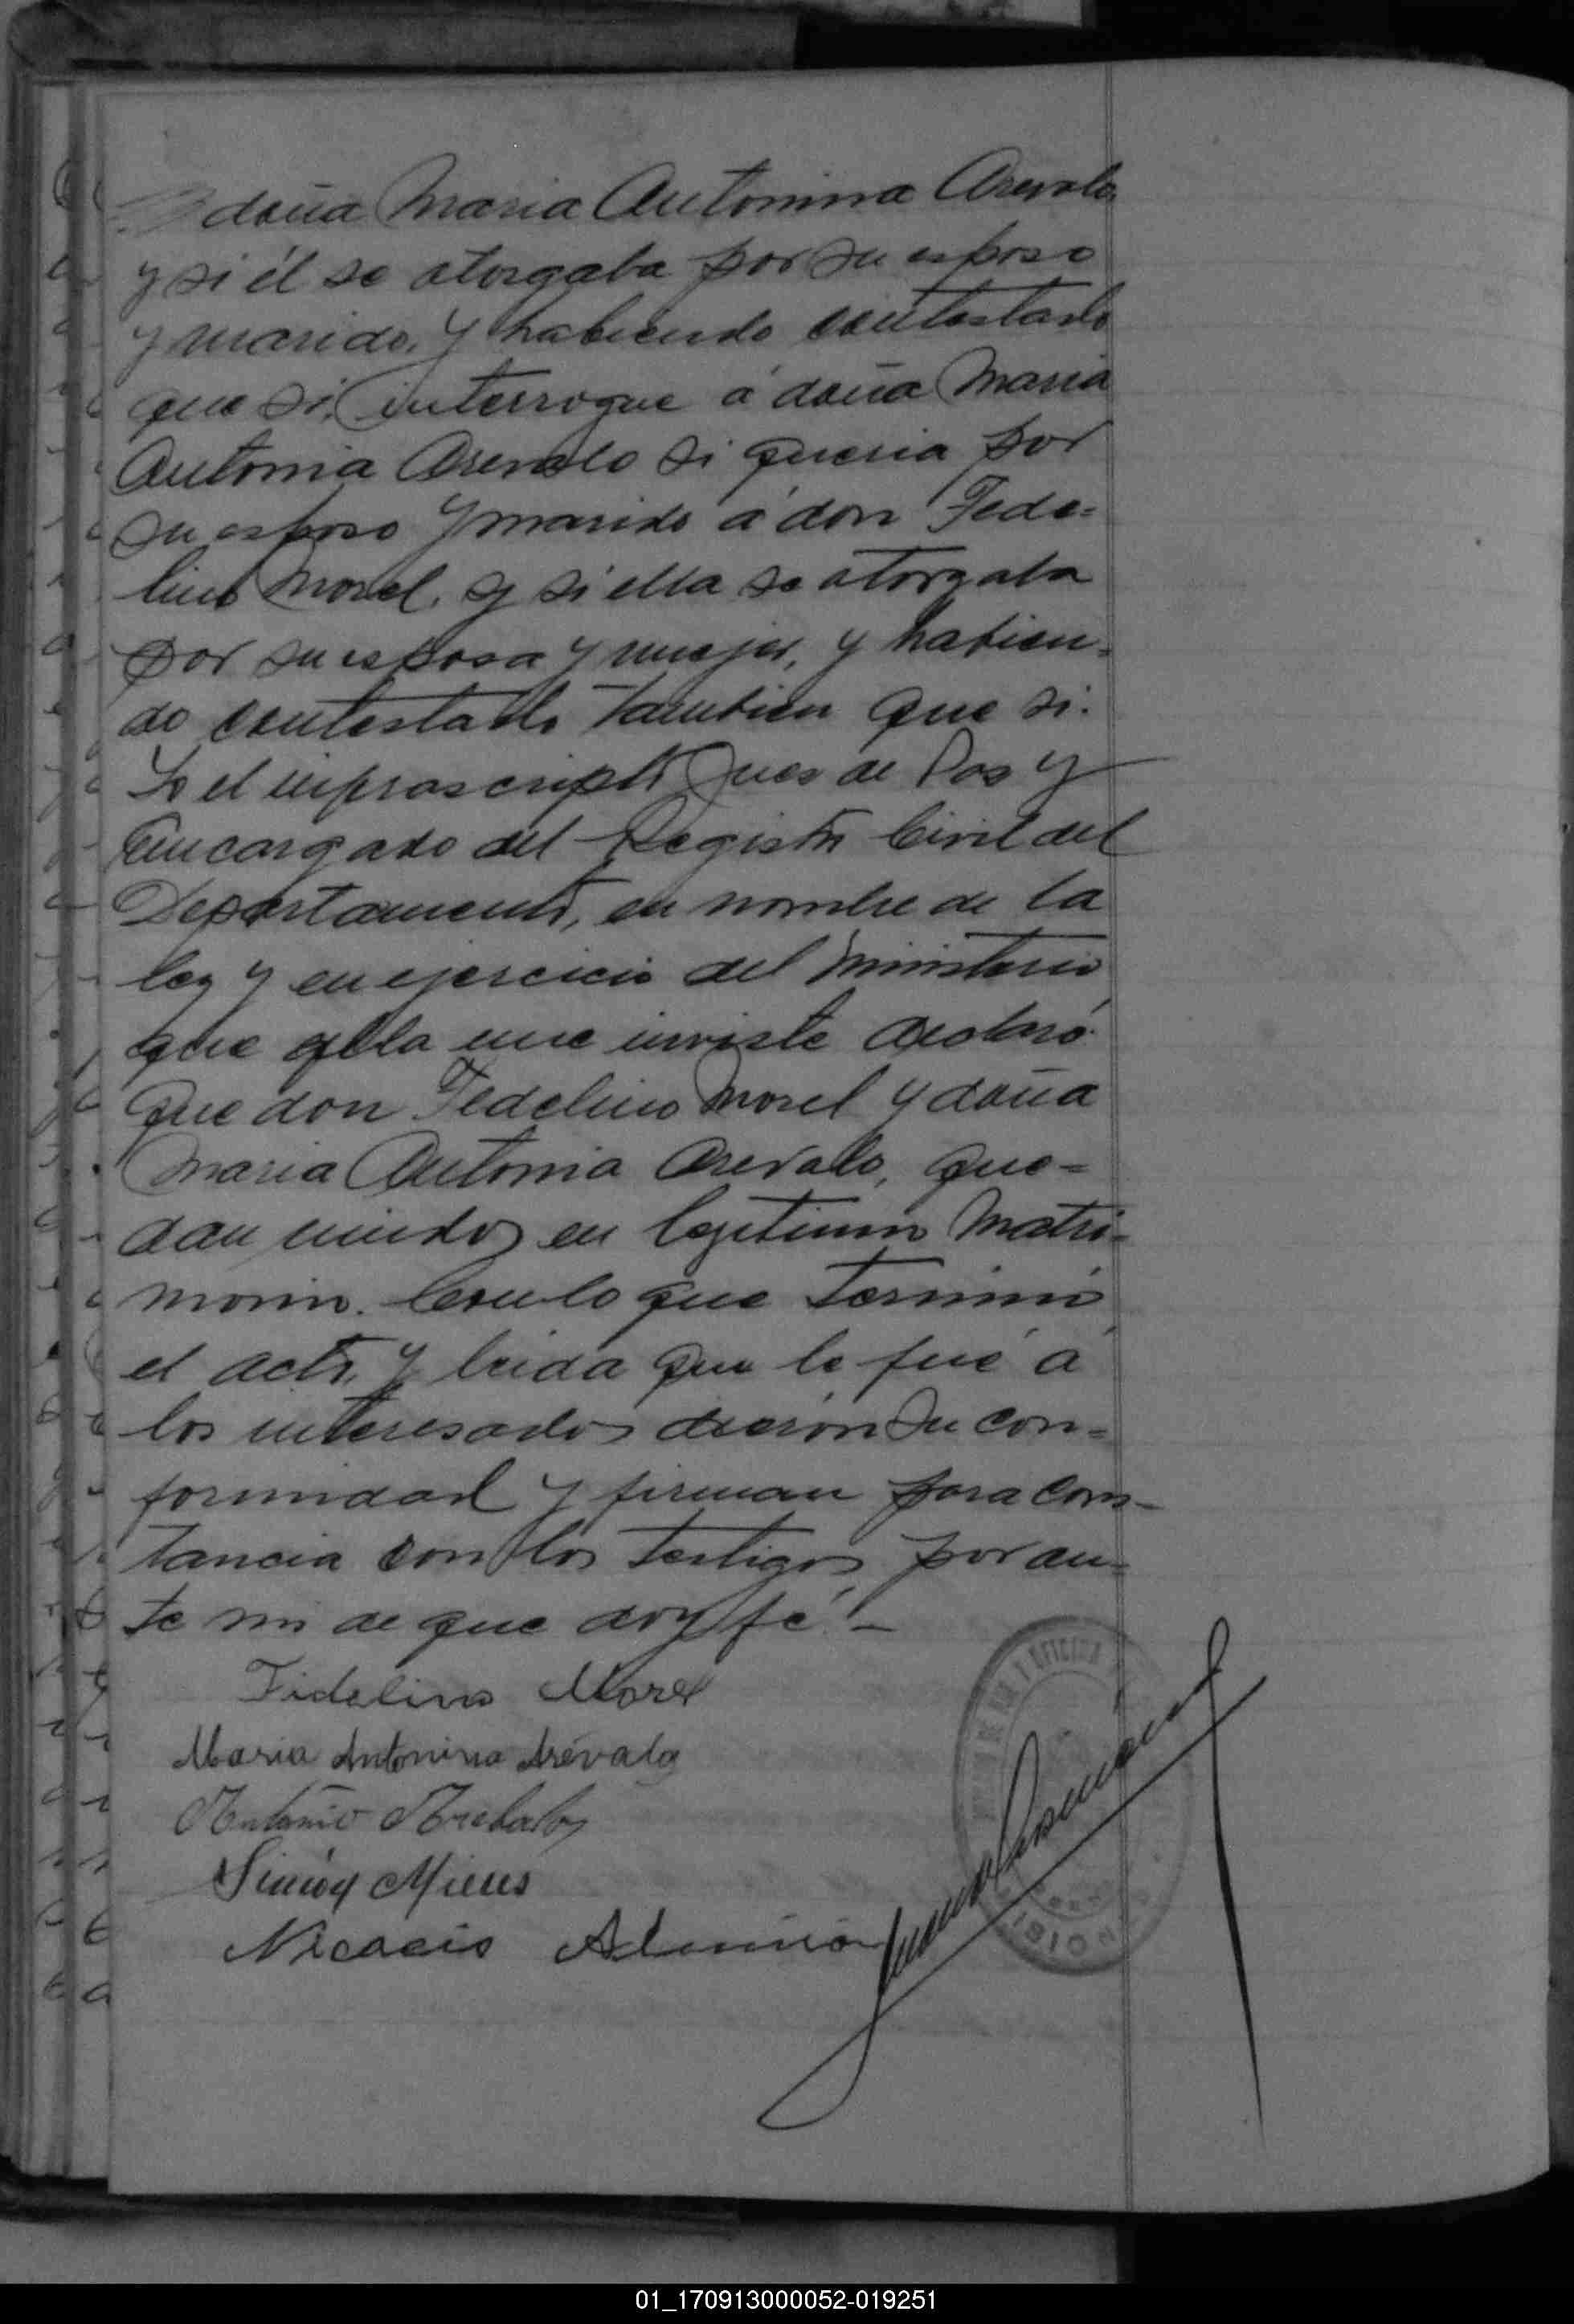 doña Maria Antonina Arevalo
y si él se otorgaba por su esposo
y marido, y habiendo contestado
que si, interrogue á doña Maria
Antonia Arevalo si queria por
su esposo y marido á don Fede=
lino Morel, y si ella se otorgaba
por su esposa y mujer, y habien=
do contestado tambien que si.
Yo el infrascripto Jues de Pas y
Encargado del Registro Civil del
Departamento, en nombre de la
ley y en ejercicio del Ministerio
que ella me inviste declaró
que don Fedelino Morel y doña
Maria Antonia Arevalo, que=
dan unidos en legitimo Matri=
monio. Con lo que terminó
el acto, y leida que le fué á
los interesados dieron su con=
formidad y firman para cons-
tancia con los testigos por an=
te mi de que doy fé. —
Fidelino Morel
Maria Antonina Arévalo
Antonio Arebalo
Simón Mieres
Nicacio
OFICINA
01_170913000052-019251